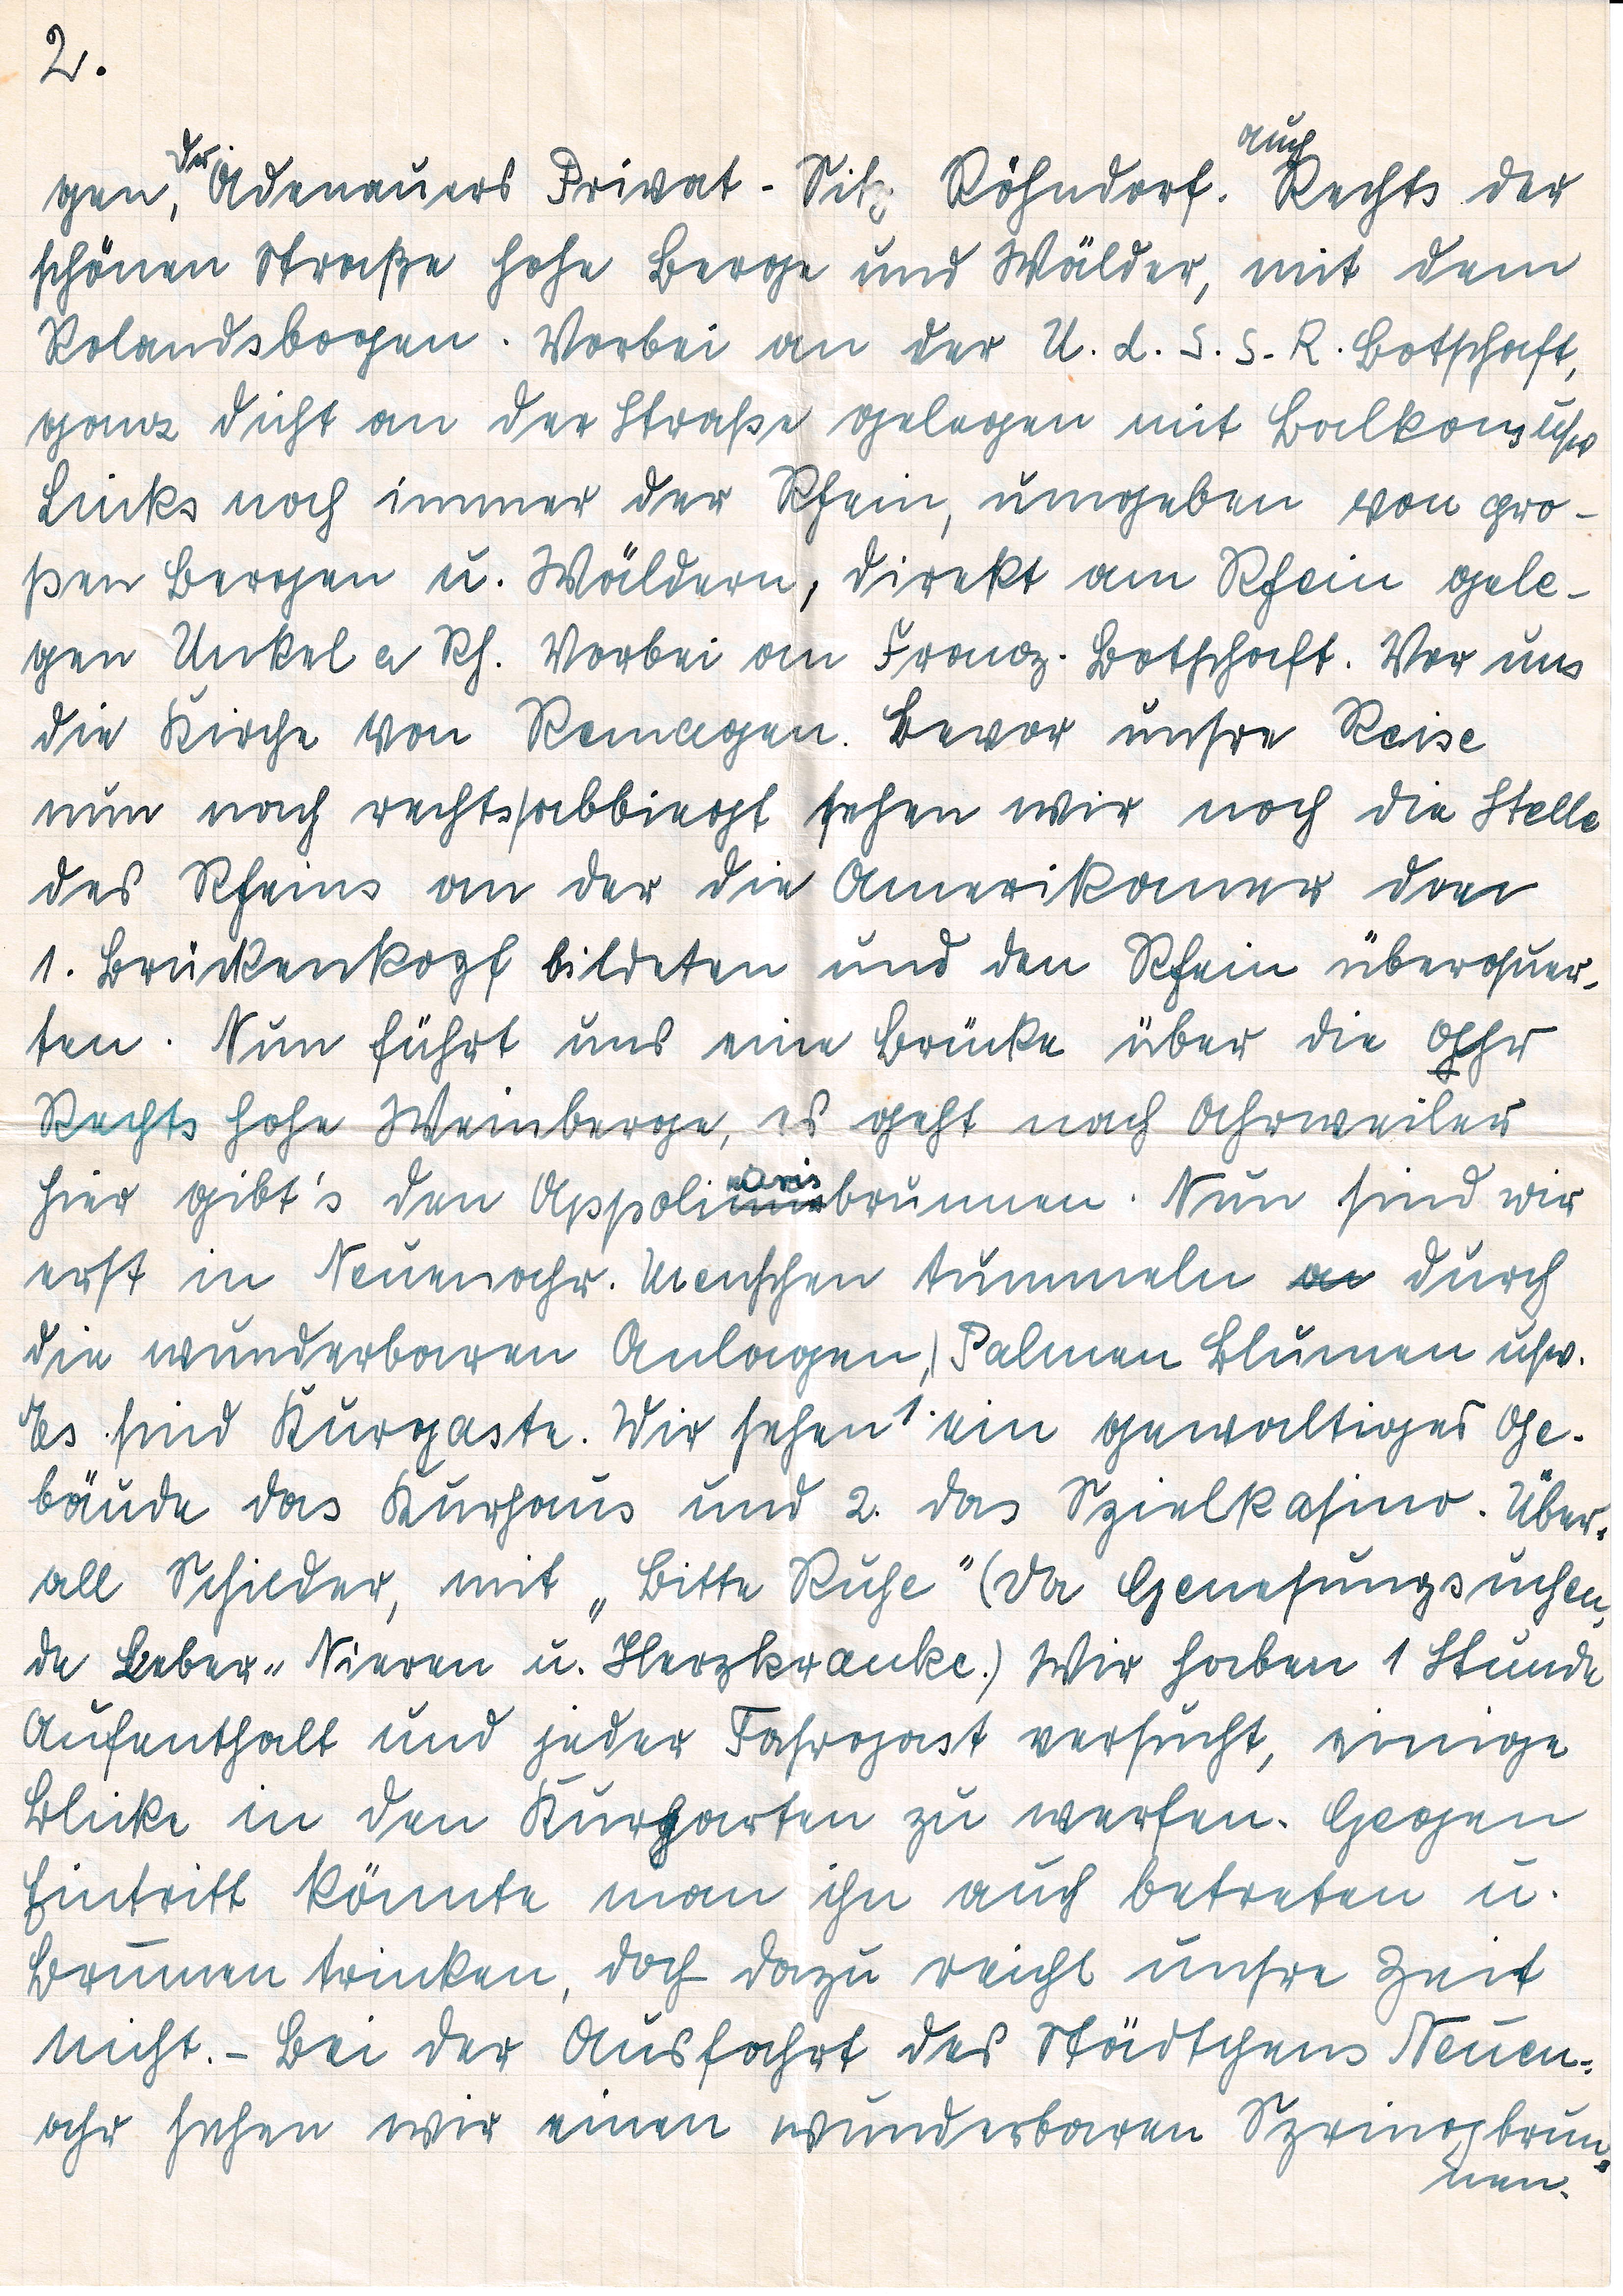 2.
gen, der Adenauers Privat-Sitz Röhndorf. auch Rechts der
schönen Straße hohe Berge und Wälder, mit dem
Rolandsbogen. Vorbei an der U.d.S.S.R. Botschaft,
ganz dicht an der Straße gelegen mit Balkons usw
Links noch immer der Rhein, umgeben von gro-
ßen Bergen u. Wäldern, direkt am Rhein gele-
gen Unkel a Rh. Vorbei an Franz. Botschaft. Vor uns
die Kirche von Remagen. Bevor unsre Reise
nun nach rechts abbiegt sehen wir noch die Stelle
des Rheins an der die Amerikaner den
1. Brückenkopf bildeten und den Rhein überquer-
ten. Nun führt uns eine Brücke über die Ahr
Rechts hohe Weinberge, es geht nach Ahrweiler
hier gibt's den Appolinarisbrunnen. Nun sind wir
erst in Neuenahr. Menschen tummeln an durch
die wunderbaren Anlagen, Palmen Blumen usw.
Es sind Kurgaste. Wir sehen 1. ein gewaltiges Ge-
bäude das Kurhaus und 2. das Spielkasino. Über-
all Schilder, mit „Bitte Ruhe" (da Genesungsuchen-
de Leber- Nieren u. Herzkranke.) Wir haben 1 Stunde
Aufenthalt und jeder Fahrgast versucht, einige
Blicke in den Kurgarten zu werfen. Gegen
Eintritt könnte man ihn auch betreten u.
Brunnen trinken, doch dazu reicht unsre Zeit
nicht. - Bei der Ausfahrt des Städtchens Neuen-
ahr sehen wir einen wunderbaren Springbrun-
nen.